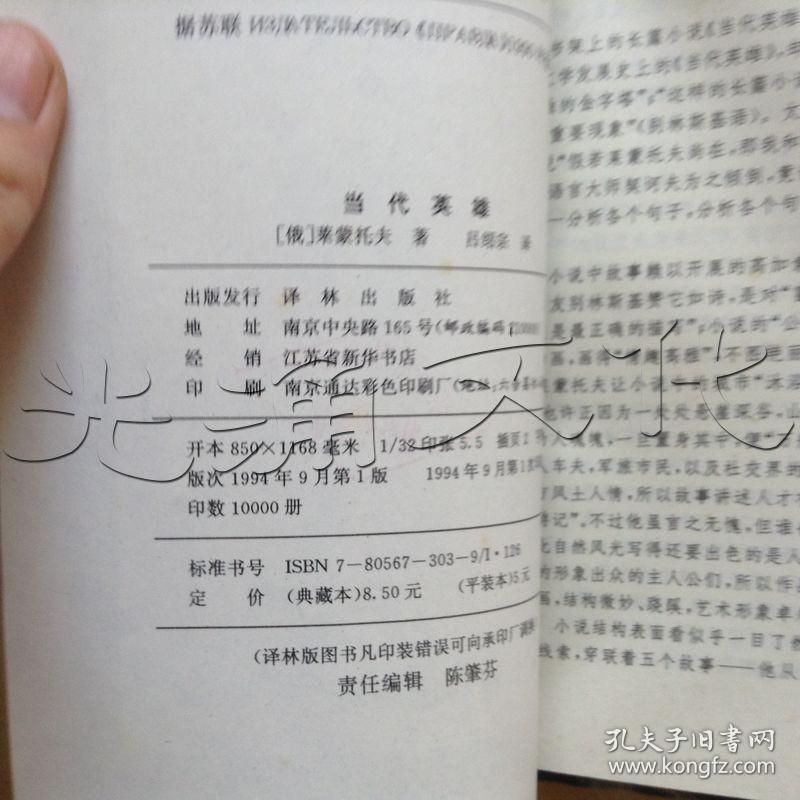 据苏联
当代英雄
[俄]莱蒙托夫 著 吕绍宗 译
出版发行 译林出版社
地 址 南京中央路165号(邮政编码
经 销 江苏省新华书店
印 刷 南京通达彩色印刷厂
开本 850×1168 毫米 1/32 印张 5.5 插页
版次 1994 年 9 月第 1 版 1994 年 9 月第1
印数 10000 册
标准书号 ISBN 7-80567-303-9/I·126
定 价 (典藏本)8.50元 (平装本)5元
(译林版图书凡印装错误可向承印厂调换
责任编辑 陈肇芬
书架上的长篇小说《当代英雄
学发展史上的《当代英雄》,
的金字塔”;“这样的长篇小
重要现象”(别林斯基语)。
假若莱蒙托夫尚在,那我和
语言大师契诃夫为之倾倒,竟
一分析各个句子,分析各个句
小说中故事赖以开展的高加索
友别林斯基赞它如诗,是对“
是最正确的描写”;小说的“公
画,画得
莱蒙托夫让小说中的城市“沐浴
许正因为一处处悬崖深谷,
人魂魄,一旦置身其中,便“
车夫,军旅市民,以及社交界的
了风土人情,所以故事讲述人才
记”。不过他虽言之无愧,但谁
比自然风光写得还要出色的是人
的形象出众的主人公们,所以作
画,结构微妙、蹊跷,艺术形象卓
小说结构表面看似乎一目了然
线索,穿联着五个故事——他从
光翔文化
孔夫子旧书网
www.kongfz.com